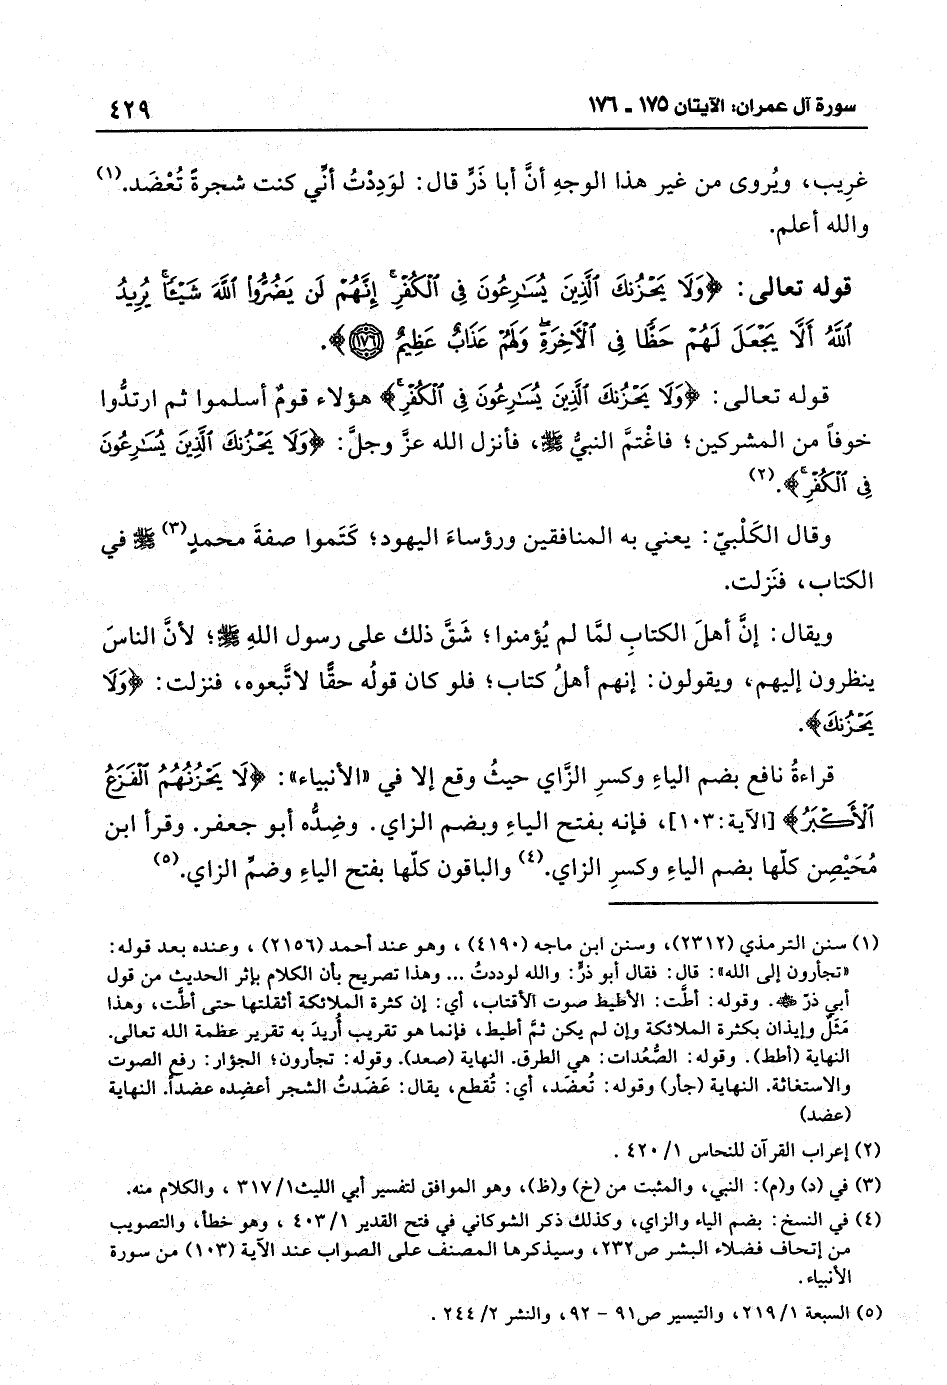 سورة آل عمران: الآيتان ١٧٥ ـ ١٧٦
٤٢٩
غريب، ويُروى من غير هذا الوجهِ أنَّ أبا ذَرٍّ قال: لوَدِدْتُ أنِّي كنت شجرةً تُعْضَد.(١)
والله أعلم.
قوله تعالى: ﴿وَلَا يَحْزُنكَ ٱلَّذِينَ يُسَٰرِعُونَ فِى ٱلْكُفْرِۚ إِنَّهُمْ لَن يَضُرُّوا۟ ٱللَّهَ شَيْـًٔاۗ يُرِيدُ
ٱللَّهُ أَلَّا يَجْعَلَ لَهُمْ حَظًّا فِى ٱلْءَاخِرَةِۖ وَلَهُمْ عَذَابٌ عَظِيمٌ ۝١٧٦﴾.
قوله تعالى: ﴿وَلَا يَحْزُنكَ ٱلَّذِينَ يُسَٰرِعُونَ فِى ٱلْكُفْرِۚ﴾ هؤلاء قومٌ أسلموا ثم ارتدُّوا
خوفاً من المشركين؛ فاغْتمَّ النبيُّ ﷺ، فأنزل الله عزَّ وجلَّ: ﴿وَلَا يَحْزُنكَ ٱلَّذِينَ يُسَٰرِعُونَ
فِى ٱلْكُفْرِۚ﴾.(٢)
وقال الكَلْبيّ: يعني به المنافقين ورؤساءَ اليهود؛ كَتَموا صفةَ محمدٍ(٣) ﷺ في
الكتاب، فنَزلت.
ويقال: إنَّ أهلَ الكتابِ لمَّا لم يُؤمنوا؛ شَقَّ ذلك على رسول اللهِ ﷺ؛ لأنَّ الناسَ
ينظرون إليهم، ويقولون: إنهم أهلُ كتاب؛ فلو كان قولُه حقًّا لاتَّبعوه، فنزلت: ﴿وَلَا
يَحْزُنكَ﴾.
قراءةُ نافع بضم الياءِ وكسرِ الزَّاي حيثُ وقع إلا في «الأنبياء»: ﴿لَا يَحْزُنُهُمُ ٱلْفَزَعُ
ٱلْأَكْبَرُ﴾ [الآية:١٠٣]، فإنه بفتح الياءِ وبضم الزاي. وضِدُّه أبو جعفر. وقرأ ابن
مُحَيْصِن كلّها بضم الياءِ وكسرِ الزاي.(٤) والباقون كلّها بفتح الياءِ وضمِّ الزاي.(٥)
(١) سنن الترمذي (٢٣١٢)، وسنن ابن ماجه (٤١٩٠) ، وهو عند أحمد (٢١٥٦) ، وعنده بعد قوله:
«تجأرون إلى الله»: قال: فقال أبو ذرٍّ: والله لوددتُ ... وهذا تصريح بأن الكلام بإثر الحديث من قول
أبي ذرّ ﷺ. وقوله: أطَّت: الأطيط صوت الأقتاب، أي: إن كثرة الملائكة أثقلتها حتى أطَّت، وهذا
مَثَلٌ وإيذان بكثرة الملائكة وإن لم يكن ثمَّ أطيط، فإنما هو تقريب أُريدَ به تقرير عظمة الله تعالى.
النهاية (أطط). وقوله: الصُّعُدات: هي الطرق. النهاية (صعد). وقوله: تجأرون؛ الجؤار: رفع الصوت
والاستغاثة. النهاية (جأر) وقوله: تُعضَد، أي: تُقطع، يقال: عَضَدتُ الشجر أعضِده عضداً. النهاية
(عضد)
(٢) إعراب القرآن للنحاس ١/ ٤٢٠ .
(٣) في (د) و(م): النبي، والمثبت من (خ) و(ظ)، وهو الموافق لتفسير أبي الليث١/ ٣١٧ ، والكلام منه.
(٤) في النسخ: بضم الياء والزاي، وكذلك ذكر الشوكاني في فتح القدير ١/ ٤٠٣ ، وهو خطأ، والتصويب
من إتحاف فضلاء البشر ص٢٣٢، وسيذكرها المصنف على الصواب عند الآية (١٠٣) من سورة
الأنبياء.
(٥) السبعة ١/ ٢١٩، والتيسير ص٩١ - ٩٢، والنشر ٢/ ٢٤٤ .